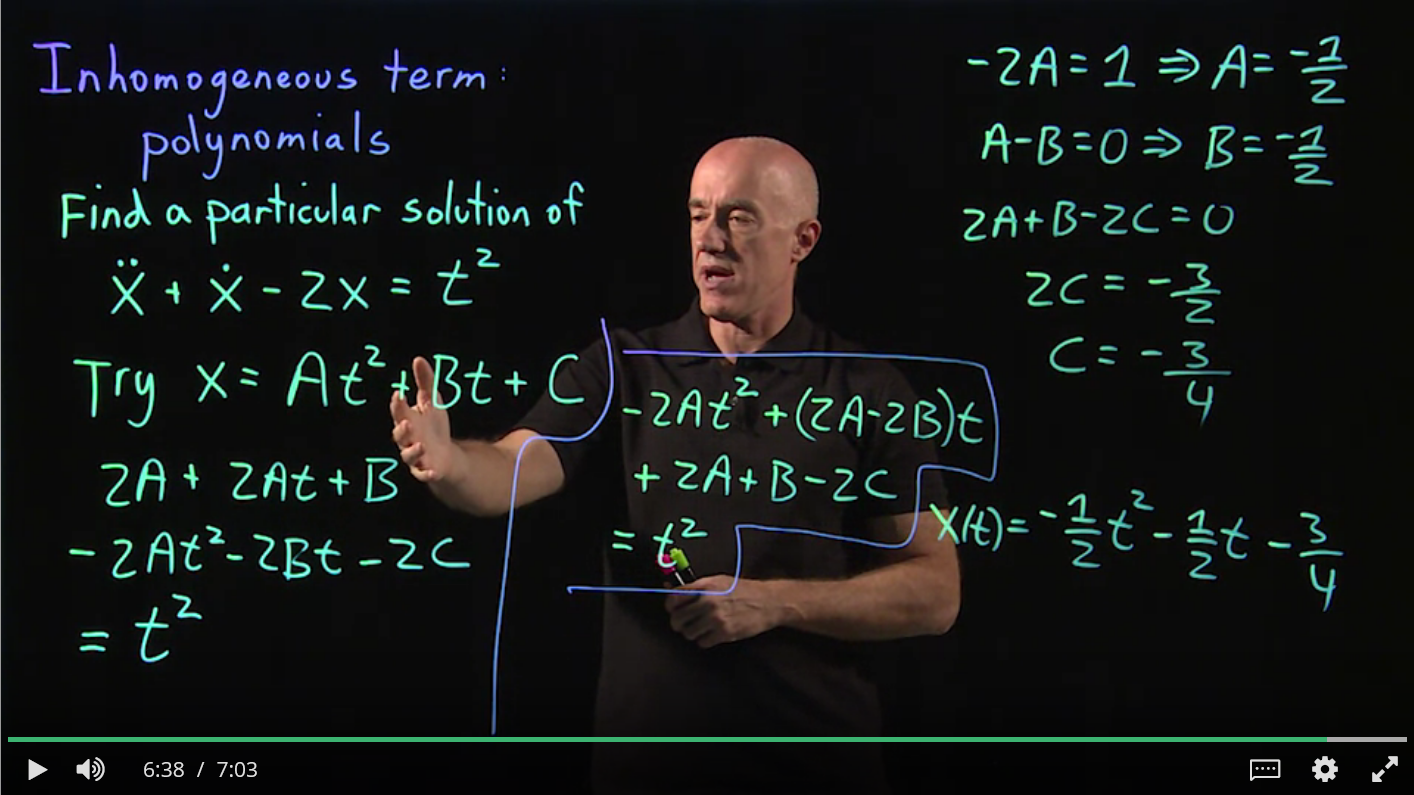 Inhomogeneous term:
polynomials
Find a particular solution of
ẍ + ẋ - 2x = t²
Try x = At² + Bt + C
2A + 2At + B
-2At² - 2Bt - 2C
= t²
-2At² + (2A-2B)t
+ 2A + B - 2C
= t²
-2A = 1 ⇒ A = -1/2
A-B = 0 ⇒ B = -1/2
2A+B-2C = 0
2C = -3/2
C = -3/4
x(t) = -1/2 t² - 1/2 t - 3/4
6:38 / 7:03